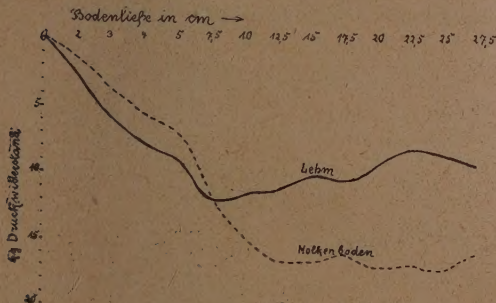 Bodentiefe in cm →
0 2 3 4 5 7,5 10 12,5 15 17,5 20 22,5 25 27,5
5
10
15
20
kg Druckwiderstand
Lehm
Molkenboden